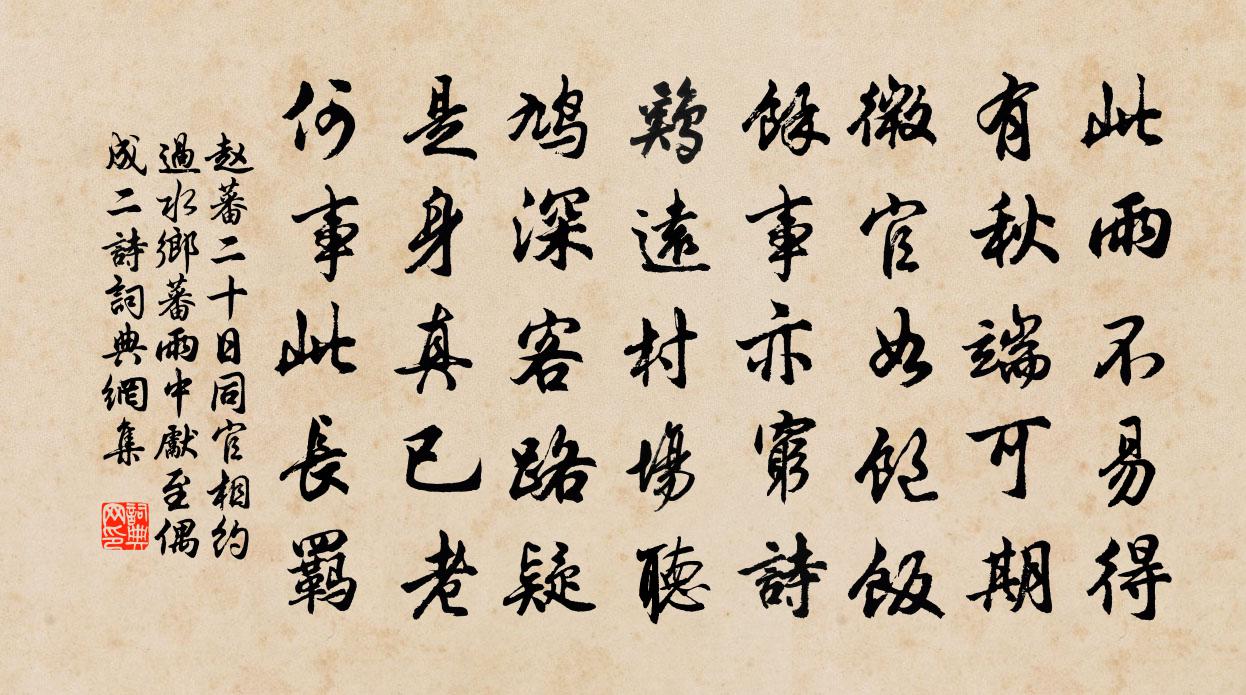 此雨不易得
有秋端可期
微官如飽飯
餘事亦窮詩
鷄遠村場聽
鳩深客路疑
是身真已老
何事此長羈
赵蕃二十日同官相約
過水鄉蕃雨中獻至偶
成二詩詞典網集
詞典
网印